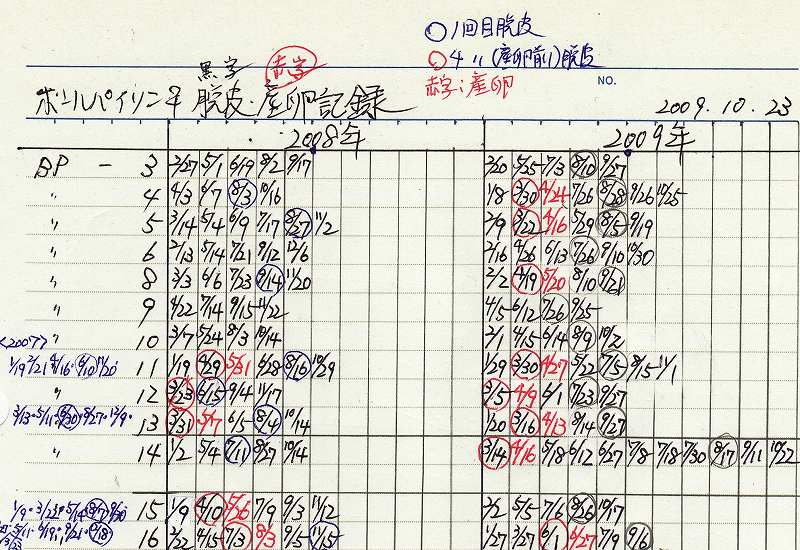 ○1回目脱皮
○4〃(産卵前)脱皮
黒字 赤字
赤字:産卵
NO.
ボールパイソン♀ 脱皮・産卵記録 2009.10.23
2008年 2009年
BP - 3 2/27 5/1 6/19 8/2 9/17 2/20 5/25 7/3 8/10 9/27
〃 4 4/3 6/7 8/3 10/16 1/8 3/30 4/24 7/26 8/28 9/26 10/25
〃 5 3/14 5/4 6/9 7/17 8/27 11/2 2/9 3/22 4/16 5/29 8/5 9/19
〃 6 2/13 5/14 7/21 9/12 12/6 2/16 4/26 6/13 7/26 9/10 10/30
〃 8 3/3 6/6 7/23 9/14 11/20 2/2 4/19 5/20 8/10 9/21
〃 9 4/22 7/14 9/15 11/22 4/5 6/12 7/26 9/25
<2007> 〃 10 3/7 5/24 8/3 10/14 2/1 4/15 6/14 8/9 10/2
1/19 2/21 4/16・6/10 11/20・ 〃 11 1/19 4/29 5/31 6/28 8/16 10/29 1/29 3/30 4/27 5/22 7/5 8/15 11/1
〃 12 3/23 6/15 9/4 11/17 3/5 4/9 6/1 7/23 9/27
3/13・5/11・6/30・8/27・12/9・ 13 3/31 5/7 6/5 8/4 10/14 1/20 3/16 4/13 8/14 9/27
〃 14 1/2 5/4 7/11 8/27 10/14 3/14 4/16 5/18 6/12 6/27 7/8 7/18 7/30 8/17 9/11 10/22
1/9・3/23・5/14・8/7・9/30 15 1/9 4/10 5/26 7/9 9/3 11/12 2/2 5/5 7/6 8/26 10/17
5/11・6/19・9/21・9/18 16 2/22 4/15 7/3 8/3 9/5 11/15 1/27 3/27 6/1 6/27 7/9 9/6
3/23